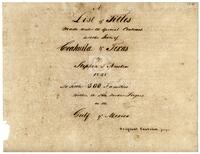 A
List of Titles
Made under the Special Contract
in the State of
Coahuila & Texas
by
Stephen F. Austin
1828
To settle 300 Families
within the Ten Border Leagues
on the
Gulf of Mexico
Original Contract, page